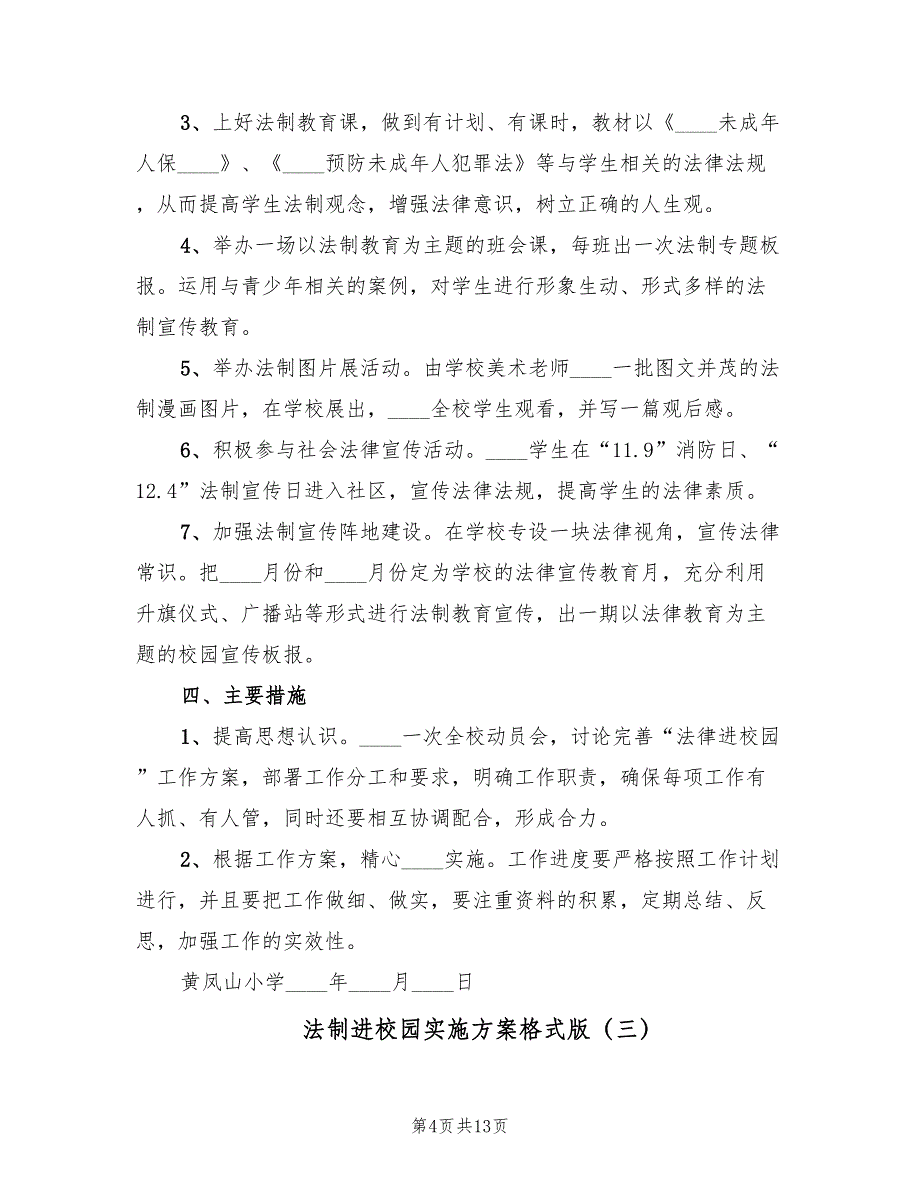 3、上好法制教育课，做到有计划、有课时，教材以《____未成年
人保____》、《____预防未成年人犯罪法》等与学生相关的法律法规
，从而提高学生法制观念，增强法律意识，树立正确的人生观。
4、举办一场以法制教育为主题的班会课，每班出一次法制专题板
报。运用与青少年相关的案例，对学生进行形象生动、形式多样的法
制宣传教育。
5、举办法制图片展活动。由学校美术老师____一批图文并茂的法
制漫画图片，在学校展出，____全校学生观看，并写一篇观后感。
6、积极参与社会法律宣传活动。____学生在“11.9”消防日、“
12.4”法制宣传日进入社区，宣传法律法规，提高学生的法律素质。
7、加强法制宣传阵地建设。在学校专设一块法律视角，宣传法律
常识。把____月份和____月份定为学校的法律宣传教育月，充分利用
升旗仪式、广播站等形式进行法制教育宣传，出一期以法律教育为主
题的校园宣传板报。
四、主要措施
1、提高思想认识。____一次全校动员会，讨论完善“法律进校园
”工作方案，部署工作分工和要求，明确工作职责，确保每项工作有
人抓、有人管，同时还要相互协调配合，形成合力。
2、根据工作方案，精心____实施。工作进度要严格按照工作计划
进行，并且要把工作做细、做实，要注重资料的积累，定期总结、反
思，加强工作的实效性。
黄凤山小学____年____月____日
法制进校园实施方案格式版（三）
第4页共13页